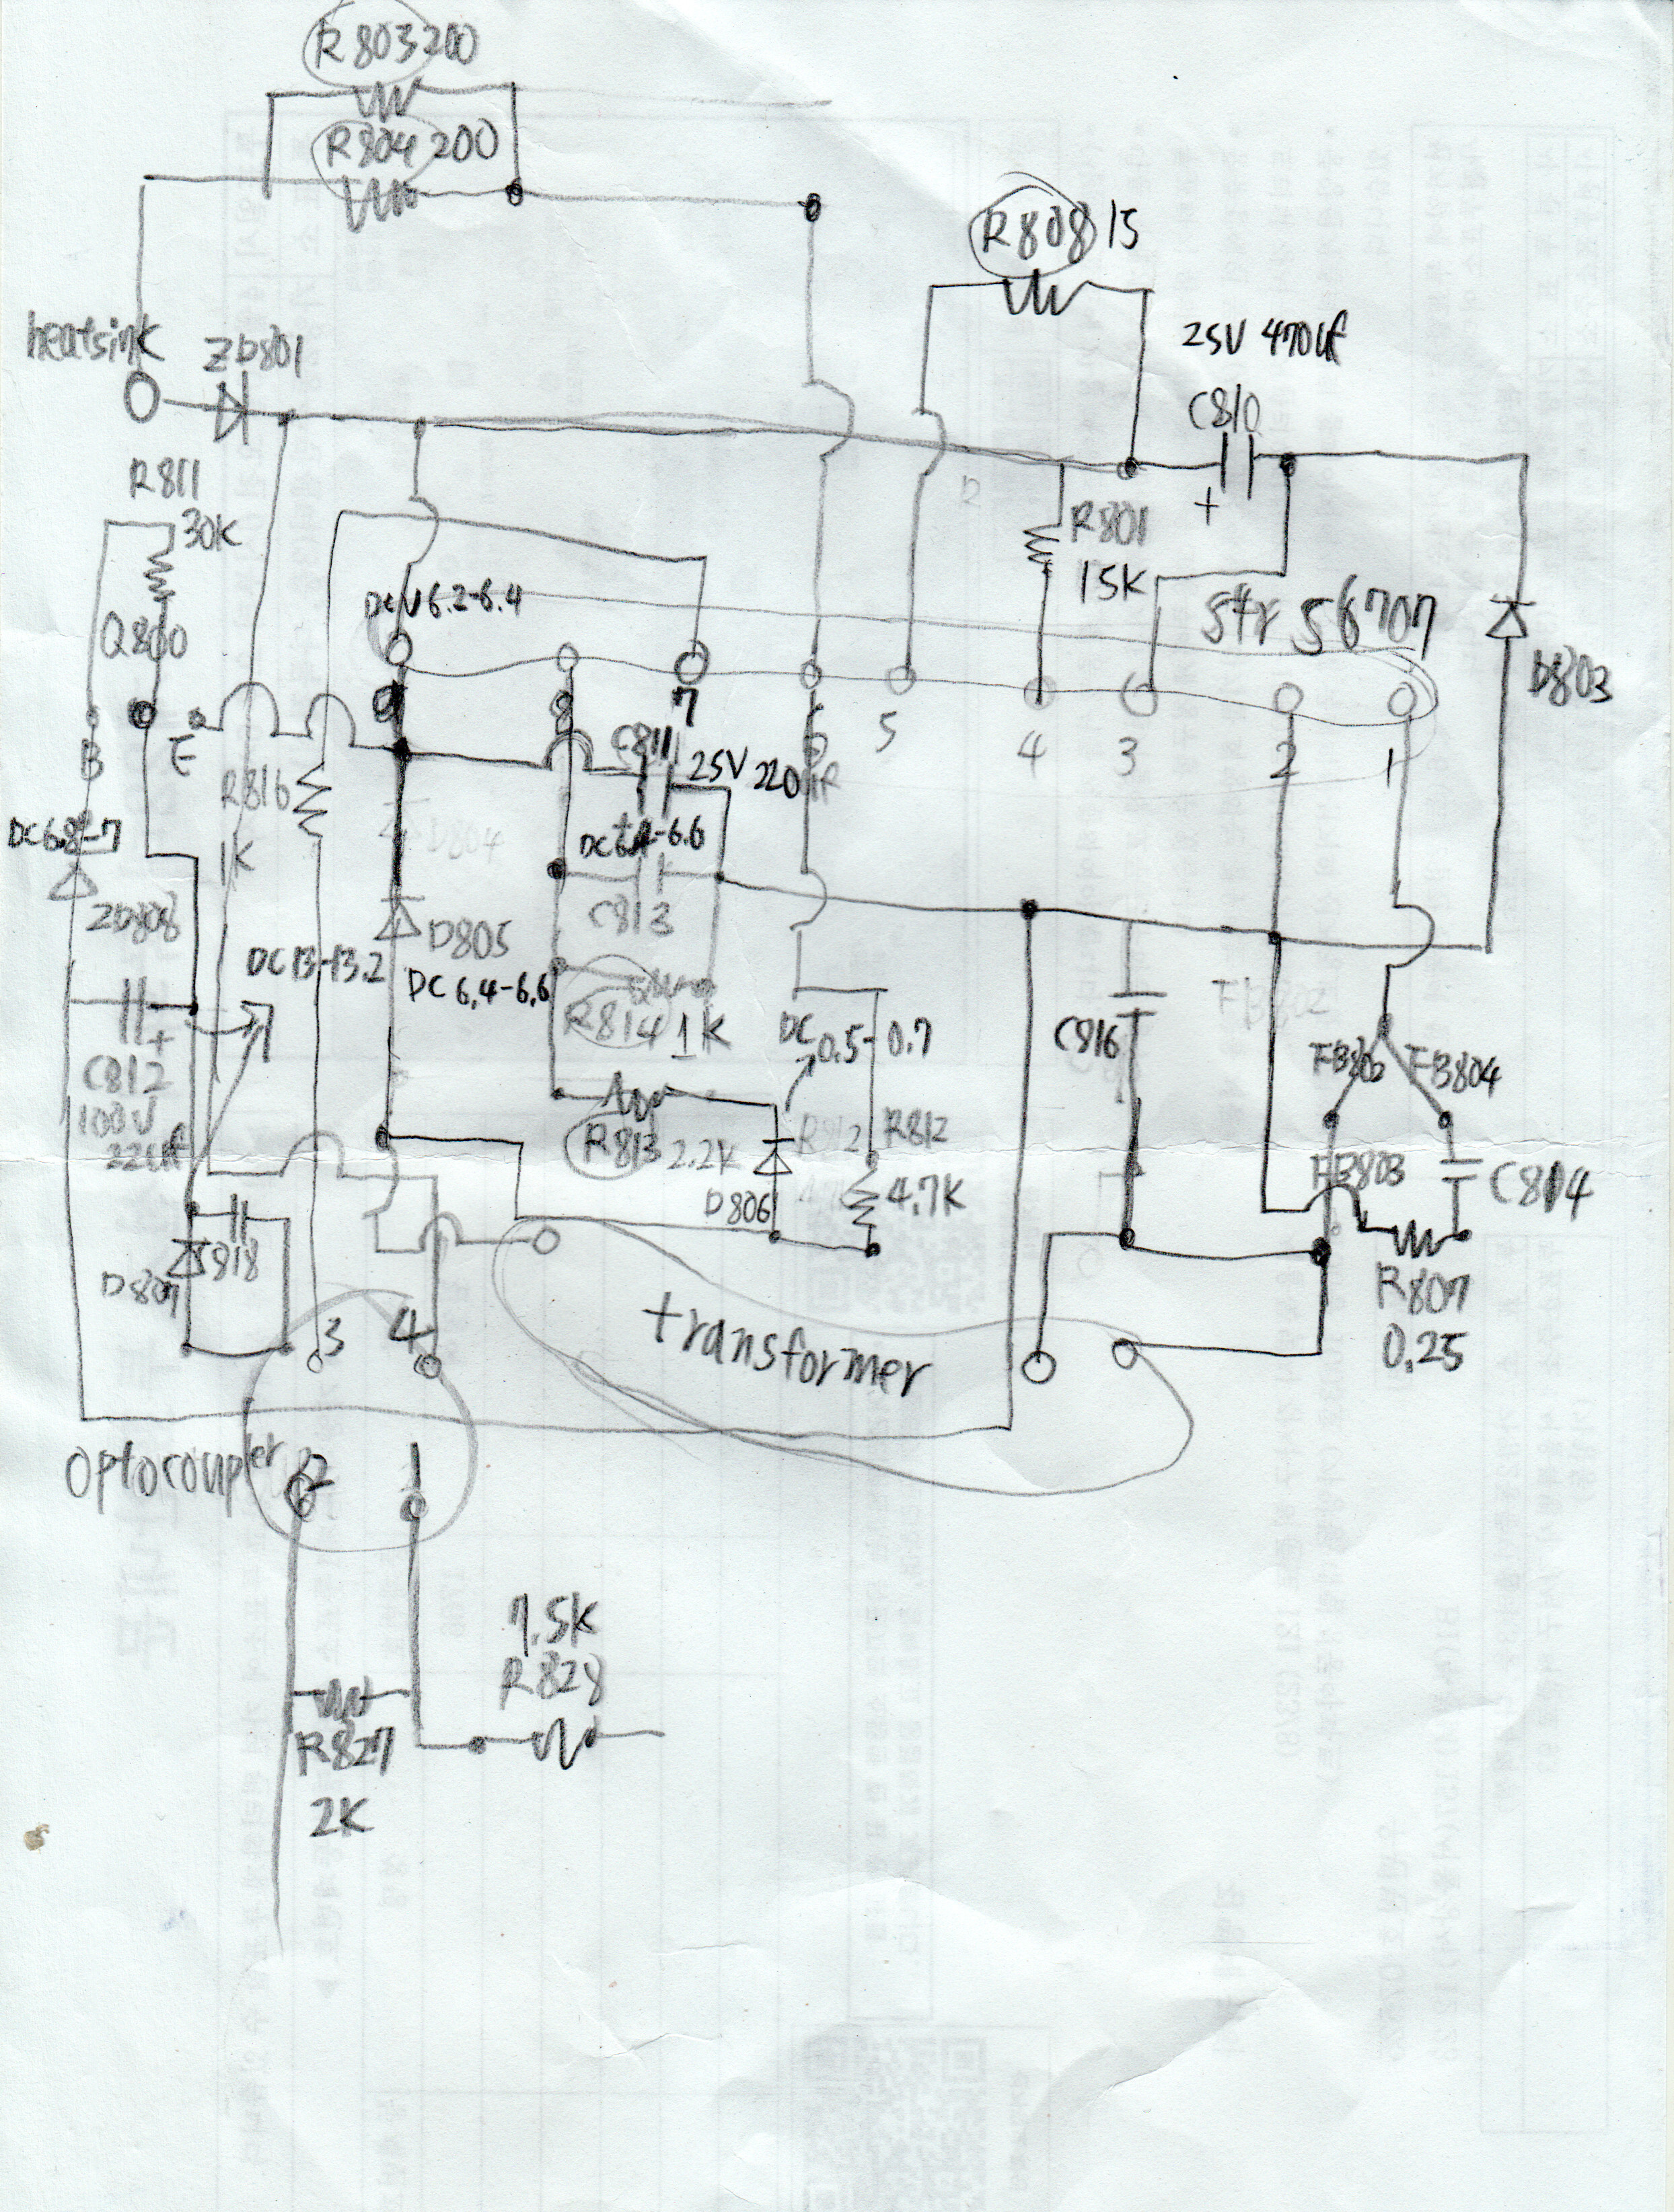 R803 200
R804 200
R808 15
heatsink
ZD801
25V 470uf
C810
+
R811
30K
R801
15K
DCV 6.2-6.4
Str S6707
Q800
D803
9
8
7
6
5
4
3
2
1
B
E
C811
25V 220
R816
1K
DC6.8-7
D804
DC6.4-6.6
C813
ZD808
D805
DC13-13.2
DC 6.4-6.6
R814 1K
DC 0.5-0.7
C816
FB802
FB804
+
C812
100V
22uf
R813 2.2K
R812
R812
4.7K
D806
FB803
C814
818
D807
R807
0.25
3
4
transformer
Optocoupler
2
1
7.5K
R828
R827
2K